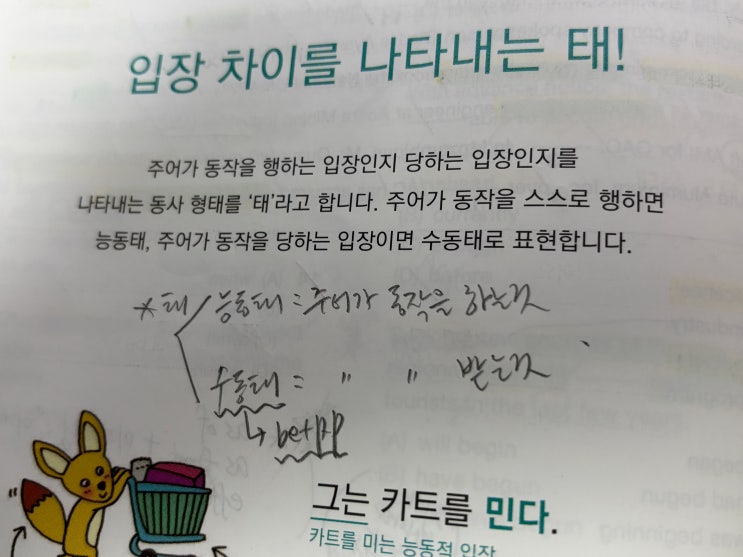 입장 차이를 나타내는 태!
주어가 동작을 행하는 입장인지 당하는 입장인지를
나타내는 동사 형태를 '태'라고 합니다. 주어가 동작을 스스로 행하면
능동태, 주어가 동작을 당하는 입장이면 수동태로 표현합니다.
*태 능동태 : 주어가 동작을 하는것
수동태 = " " 받는것
↳ be+pp
그는 카트를 민다.
카트를 미는 능동적 입장